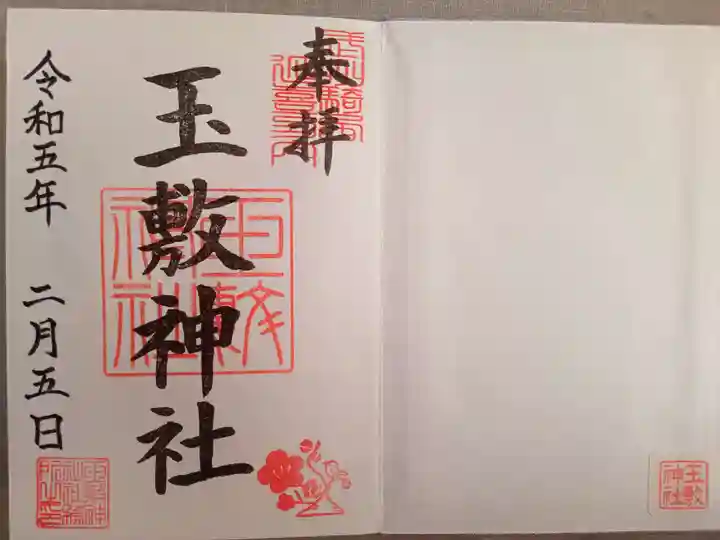 奉拝
玉敷神社
令和五年 二月五日
玉敷神社
玉敷神社